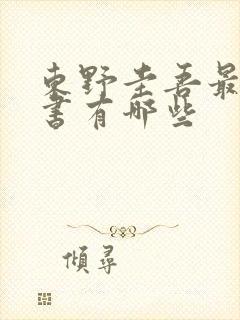 東野圭吾最
書有哪些
傾尋